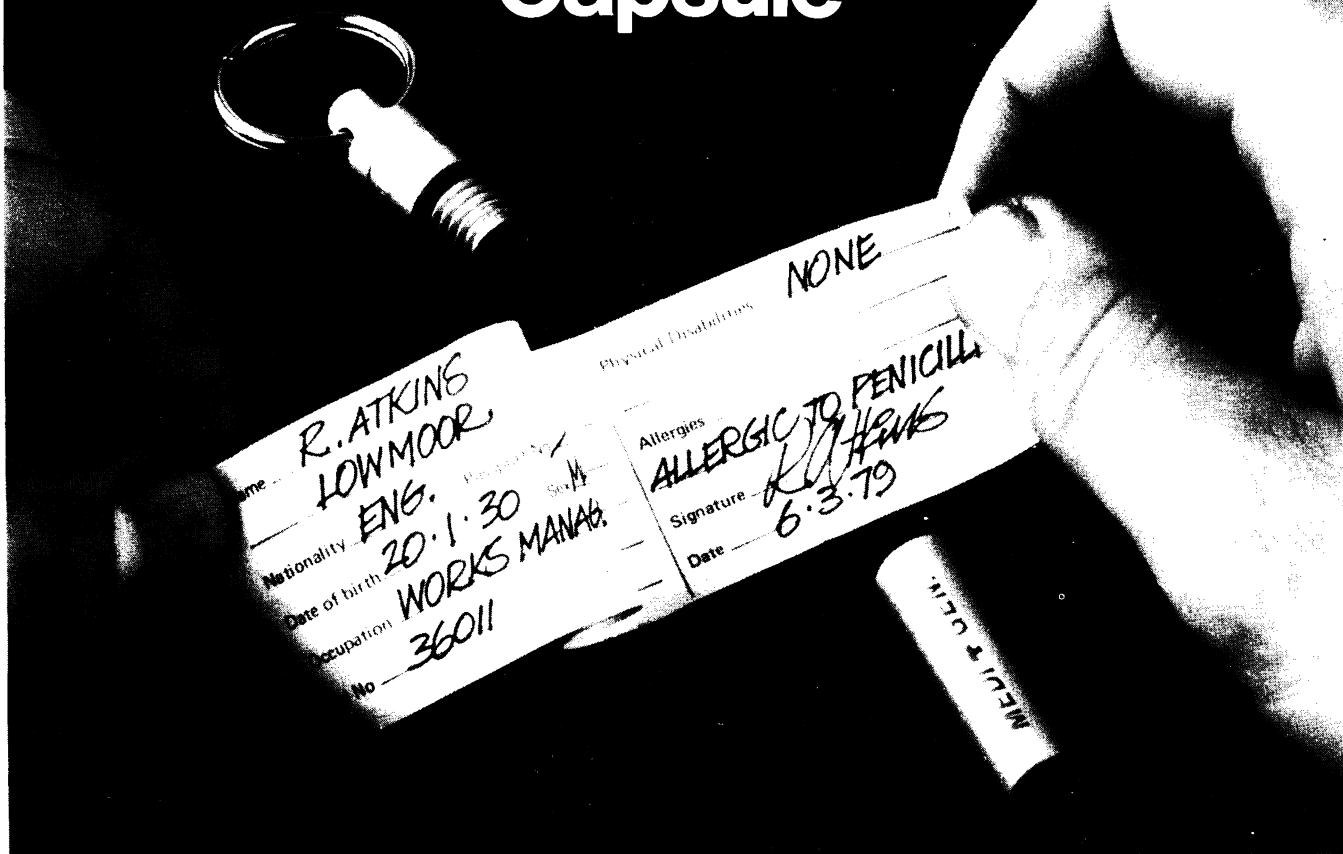 Capsule
R. ATKINS
LOWMOOR
Nationality ENG.
Date of birth 20·1·30 Sex M
Occupation WORKS MANAG.
No 36011
Physical Disabilities NONE
Allergies
ALLERGIC TO PENICILL
Signature R Atkins
Date 6·3·79